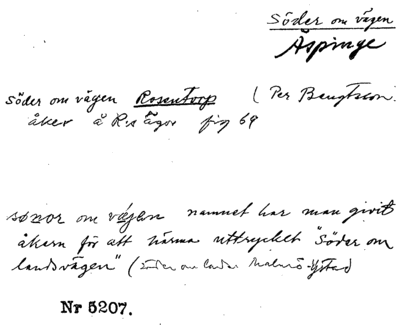 Söder om vägen
Äspinge
Söder om vägen Rosentorp (Per Bengtsson.
åker å R:s ägor fig 69
sønor om vägen namnet har man givit
åkern för att härma uttrycket "Söder om
landsvägen" (söder om landsv. Malmö-Ystad
Nr 5207.